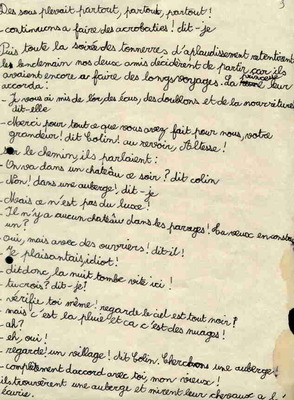 3
Des sous plevait partout, partout, partout!
- continuons a faire des acrobaties! dit-je
Puis toute la soirée des tonnerres d'aplaudissement retentirent
les lendemain nos deux amis décidèrent de partir car ils
avaient encore a faire des longs voyages. La princesse leur
accorda:
- Je vous ai mis de l'or, des écus, des doublons et de la nourriture
dit-elle
- Merci pour tout ce que vous avez fait pour nous, votre
grandeur! dit Colin. au revoir, Altesse!
sur le chemin, ils parlaient:
- On va dans un chateâu ce soir? dit colin
- Non! dans une auberge!, dit-je
- Mais ce n'est pas du luxe?
- Il n'y a aucun chateâu dans les parages! tu veux en construire
un?
- Oui, mais avec des ouvriers! dit-il!
- je plaisantais, idiot!
- dit donc, la nuit tombe vite ici!
- tu crois? dit-je?
- vérifie toi même! regarde le ciel est tout noir?
- mais c'est la pluie et ça c'est des nuages!
- ah?
- eh, oui!
- regarde! un village! dit Colin. Cherchons une auberge
- complètement daccord avec toi, mon vieux!
ils trouvèrent une auberge et mirent leur chevaux a l'
écurie.